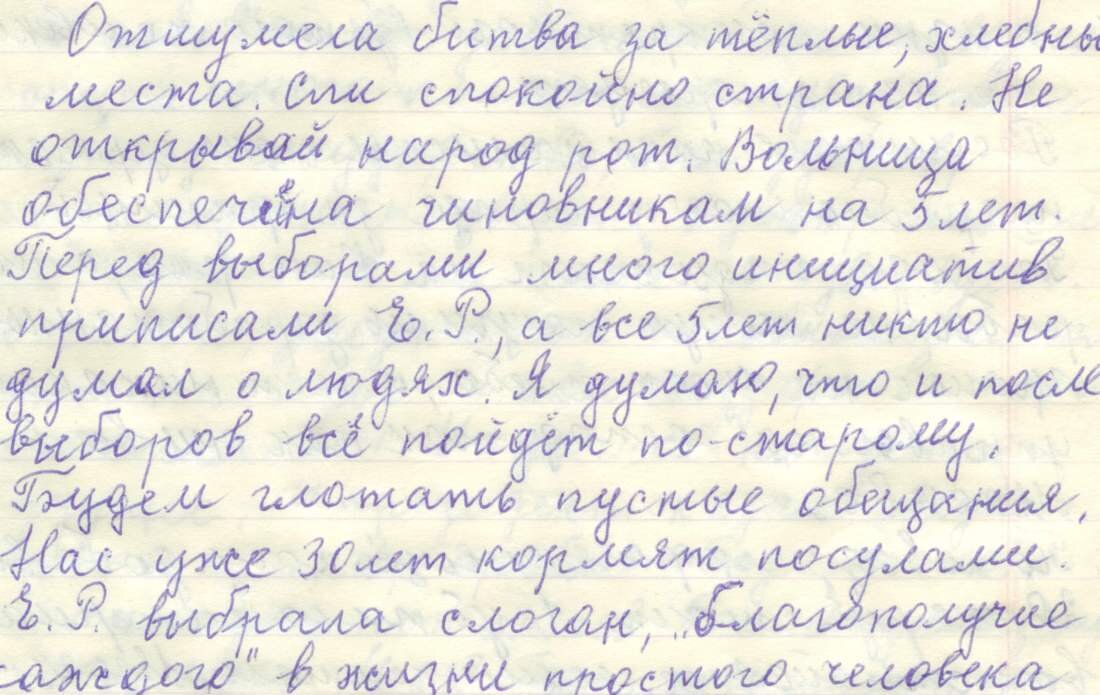 Отшумела битва за тёплые, хлебны
места. Спи спокойно страна. Не
открывай народ рот. Вольница
обеспечена чиновникам на 5 лет.
Перед выборами много инициатив
приписали Е.Р., а все 5 лет никто не
думал о людях. Я думаю, что и после
выборов всё пойдёт по-старому.
Будем глотать пустые обещания.
Нас уже 30 лет кормят посулами.
Е.Р. выбрала слоган, „благополучие
каждого" в жизни простого человека